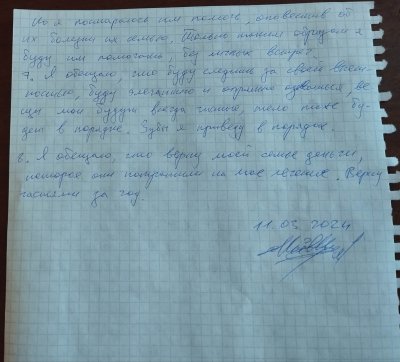 Но я постараюсь им помочь, оповестив об
их болезни их семью. Только таким образом я
буду им помогать, без личных встреч.
7. Я обещаю, что буду следить за своей внеш
ностью, буду элегантно и опрятно одеваться, ве
щи мои будут всегда чистые, тело тоже бу-
дет в порядке. Зубы я приведу в порядок.
8. Я обещаю, что верну моей семье деньги,
которые они потратили на мое лечение. Верну
частями за год.
11.03.2024